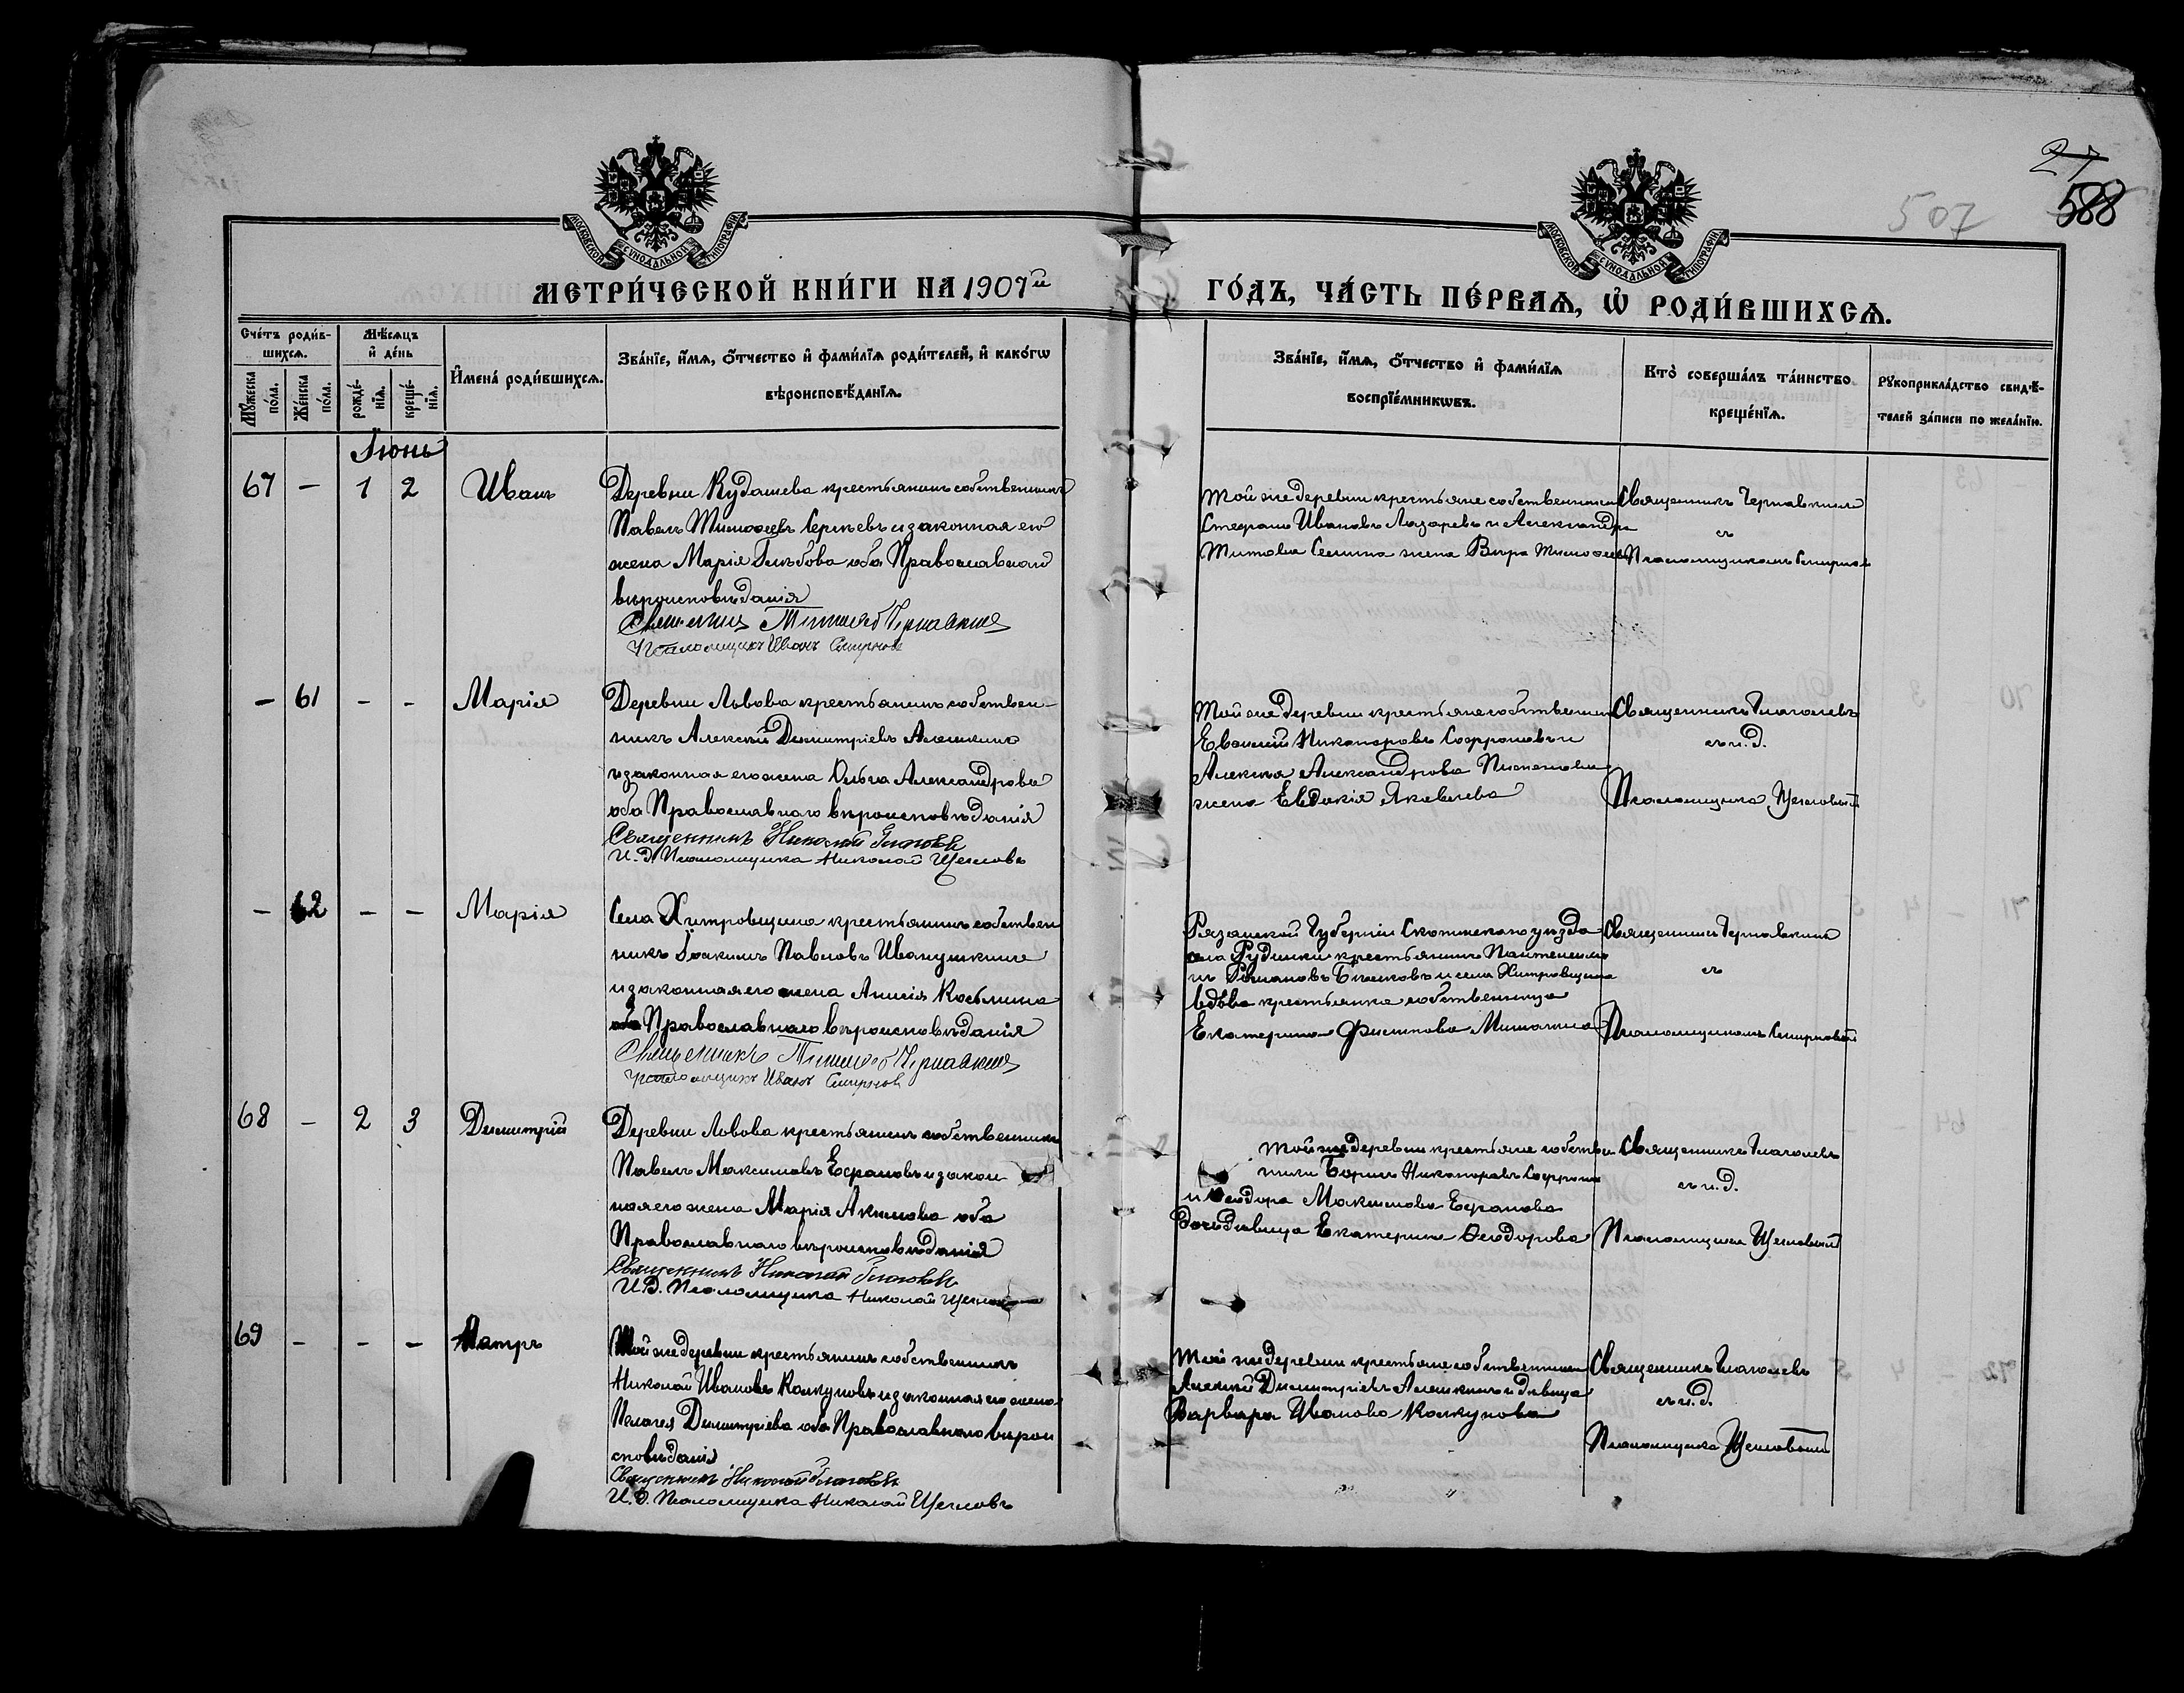 27
588
507
МОСКОВСКОЙ СѴНОДАЛЬНОЙ ТИПОГРАФІИ
МОСКОВСКОЙ СѴНОДАЛЬНОЙ ТИПОГРАФІИ
МЕТРИ́ЧЕСКОЙ КНИ́ГИ НА 1907й
ГО́ДЪ, ЧА́СТЬ ПЕ́РВАѦ, Ѡ҆ РОДИ́ВШИХСѦ.
Сче́тъ роди́в-
шихсѧ.
Мꙋ́жеска по́ла.
Же́нска по́ла.
Мѣ́сѧцъ
и҆ де́нь
рожде́-
нїѧ.
креще́-
нїѧ.
И҆мена̀ роди́вшихсѧ.
Зва́нїе, и҆́мѧ, ѻ҆́тчество и҆ фами́лїѧ роди́телей, и҆ како́гѡ
вѣроисповѣ́данїѧ.
Зва́нїе, и҆́мѧ, ѻ҆́тчество и҆ фами́лїѧ
воспрїе́мникѡвъ.
Кто̀ соверша́лъ та́инство
креще́нїѧ.
Рꙋкоприкла́дство свидѣ́-
телей за́писи по жела́нїю.
Іюнь
67 – 1 2 Иванъ
Деревни Кудашева крестьянинъ собственникъ
Павелъ Тимофеевъ Сергѣевъ и законная его
жена Марія Глѣбова оба Православнаго
вѣроисповѣданія
Священникъ Тимофей Чернавкинъ
Псаломщикъ Иванъ Смирновъ
Той же деревни крестьяне собственники
Стефанъ Ивановъ Лазаревъ и Александра
Титова Селина жена Вѣра Тимофеева
Священникъ Чернавкинъ
съ
Псаломщикомъ Смирнов
– 61 – – Марія
Деревни Львова крестьянинъ собствен-
никъ Алексѣй Димитріевъ Алешкинъ
и законная его жена Ольга Александрова
оба Православнаго вѣроисповѣданія
Священникъ Николай Глаголевъ
И. Д. Псаломщика Николай Щегловъ
Той же деревни крестьяне собственники
Евфимій Никаноровъ Софроновъ и
Алексѣя Александрова
жена Евдокія Яковлева
Священникъ Глаголевъ
съ и. д.
Псаломщика Щегловымъ
– 62 – – Марія
Села Хитровщина крестьянинъ собствен
никъ Іоакимъ Павловъ Иванушкинъ
и законная его жена Анисія Косьмина
оба Православнаго вѣроисповѣданія
Священникъ Тимофей Чернавкинъ
Псаломщикъ Иванъ Смирновъ
Рязанской Губерніи Скопинскаго уѣзда
села Рудинки крестьянинъ Пантелеимо
нъ Романовъ и села Хитровщина
вдова крестьянка собственница
Екатерина Филиппова Мишакина
Священникъ Чернавкинъ
съ
Псаломщикомъ Смирновымъ
68 – 2 3 Димитрій
Деревни Львова крестьянинъ собственникъ
Павелъ Максимовъ Ефрановъ и закон
ная его жена Марія Акимова оба
Православнаго вѣроисповѣданія
Священникъ Николай Глаголевъ
И. Д. Псаломщика Николай Щегловъ
Той же деревни крестьяне собствен
ники Борисъ Никаноровъ Софронов
и Ѳеодора Максимова Ефранова
дочь дѣвица Екатерина Ѳеодорова
Священникъ Глаголевъ
съ и. д.
Псаломщика Щегловымъ
69 – – – Петръ
Той же деревни крестьянинъ собственникъ
Николай Ивановъ Колкуновъ и законная его жена
Пелагея Димитріева оба Православнаго вѣрои
сповѣданія
Священникъ Николай Глаголевъ
И. Д. Псаломщика Николай Щегловъ
Той же деревни крестьяне собственники
Алексѣй Димитріевъ Алешкинъ и дѣвица
Варвара Иванова Колкунова
Священникъ Глаголевъ
съ и. д.
Псаломщика Щегловымъ